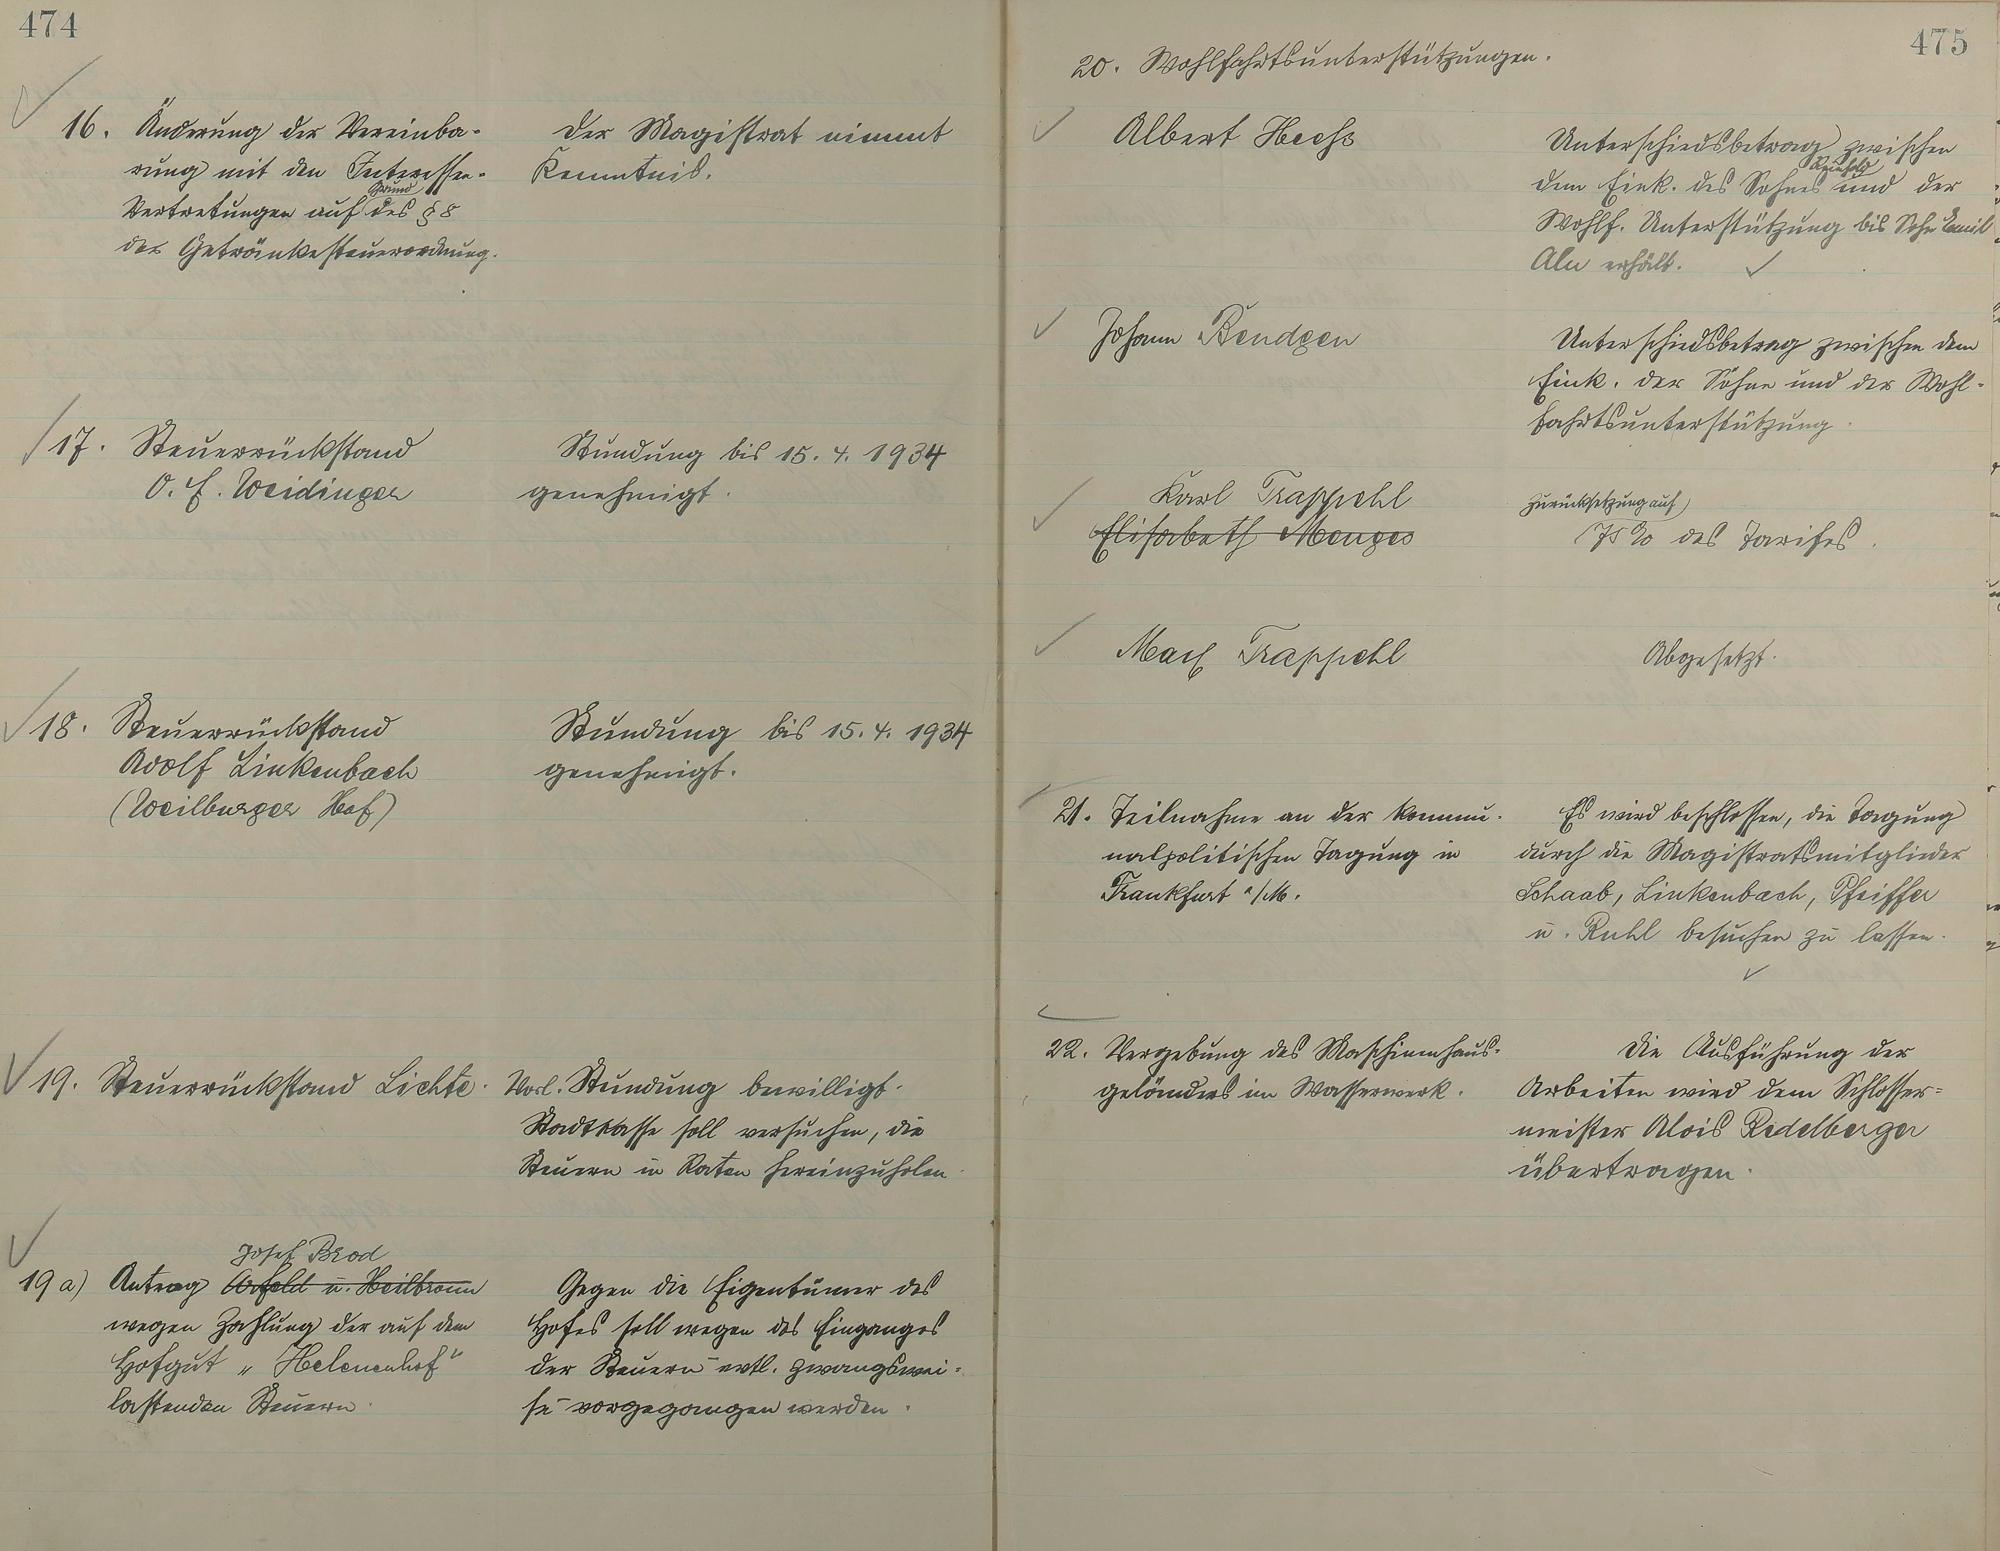 474
16. Änderung der Vereinba-
rung mit den Interessen-
Grund
Vertretungen auf des § 8
der Getränkesteuerordnung.
Der Magistrat nimmt
Kenntnis.
17. Steuerrückstand
O. E. Weidinger
Stundung bis 15. 4. 1934
genehmigt.
18. Steuerrückstand
Adolf Linkenbach
(Weilburger Hof)
Stundung bis 15. 4. 1934
genehmigt.
19. Steuerrückstand Lichte.
Vorl. Stundung bewilligt.
Stadtkasse soll versuchen, die
Steuern in Raten hereinzuholen.
Josef Brod
19 a) Antrag u. Heilbronn
wegen Zahlung der auf dem
Hofgut „Helenenhof"
lastenden Steuern.
Gegen die Eigentümer des
Hofes soll wegen des Einganges
der Steuern evtl. zwangswei-
se vorgegangen werden.
475
20. Wohlfahrtsunterstützungen.
Albert
Unterschiedsbetrag zwischen
dem Eink. des Sohnes und der
Wohlf. Unterstützung bis Sohn Emil
Alu erhält.
Johann Bendgen
Unterschiedsbetrag zwischen dem
Eink. der Söhne und der Wohl-
fahrtsunterstützung.
Karl Trappehl
Elisabeth Menges
Zurücksetzung auf
75 % des Tarifes.
Max Trappehl
Abgesetzt.
21. Teilnahme an der kommu-
nalpolitischen Tagung in
Frankfurt a/M.
Es wird beschlossen, die Tagung
durch die Magistratsmitglieder
Schaab, Linkenbach, Pfeiffer
u. Ruhl besuchen zu lassen.
22. Vergebung des Maschinenhaus-
geländers im Wasserwerk.
Die Ausführung der
Arbeiten wird dem Schlosser-
meister Alois Redelberger
übertragen.